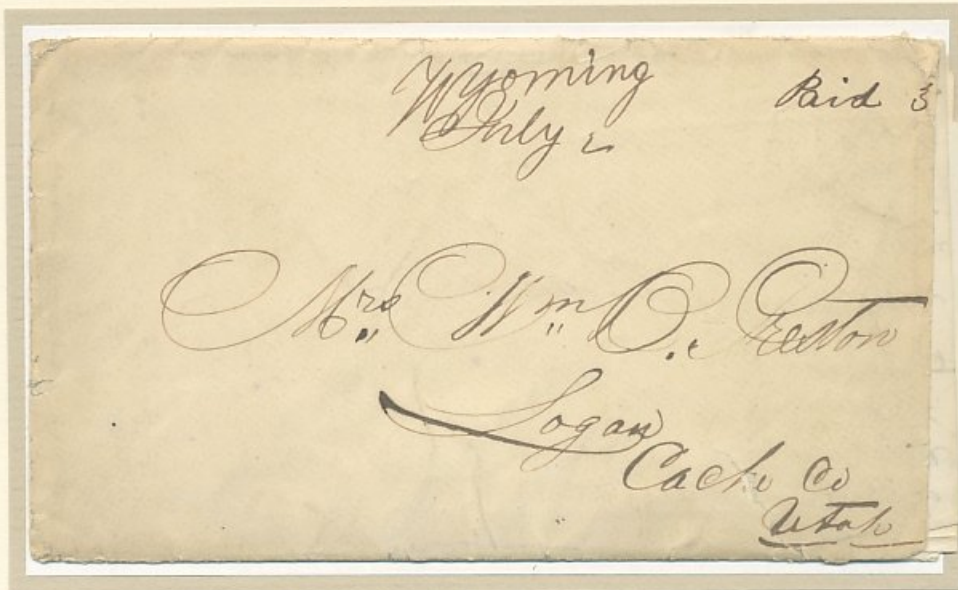 Wyoming
July 2
Paid 3
Mrs. Wm B. Preston
Logan
Cache Co
Utah